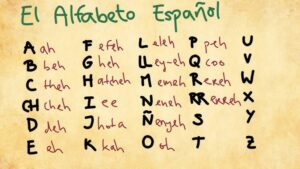 El Alfabeto Español
A aah F efeh L eleh P peh U
B beh G heh LL ey-eh Q coo V
C theh H M emeh R ereh W
CH cheh I ee N eneh RR erreh X
D deh J hota Ñ enyeh S Y
E eh K kah O oh T Z